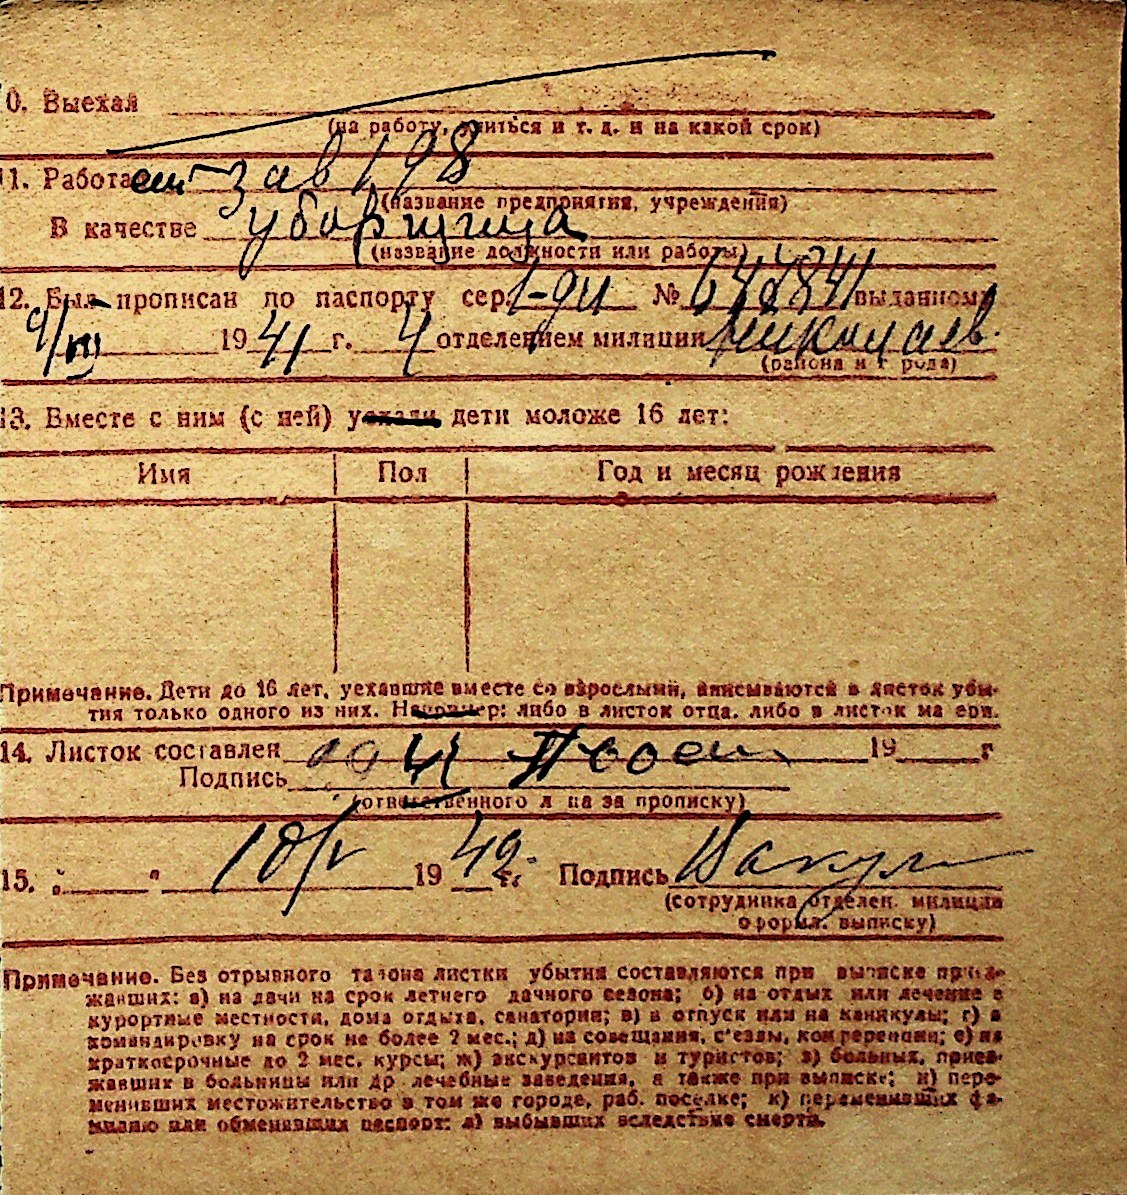 0. Выехал
(на работу, учиться и т. д. и на какой срок)
11. Работает зав 198
(название предприятия, учреждения)
В качестве уборщица
(название должности или работы)
12. Был прописан по паспорту сер. № выданному
9/III 1941 г. 4 отделением милиции Николаев.
(района и города)
13. Вместе с ним (с ней) уехали дети моложе 16 лет:
Имя Пол Год и месяц рождения
Примечание. Дети до 16 лет, уехавшие вместе со взрослыми, вписываются в листок убы-
тия только одного из них. Например: либо в листок отца, либо в листок матери.
14. Листок составлен 19 г
Подпись
(ответственного лица за прописку)
15. " " 18/V 1942 г. Подпись
(сотрудника отделен. милиции
оформл. выписку)
Примечание. Без отрывного талона листки убытия составляются при выписке приез-
жавших: а) на дачи на срок летнего дачного сезона; б) на отдых или лечение в
курортные местности, дома отдыха, санатории; в) в отпуск или на каникулы; г) в
командировку на срок не более 2 мес.; д) на совещания, с'езды, конференции; е) на
краткосрочные до 2 мес. курсы; ж) экскурсантов и туристов; з) больных, приез-
жавших в больницы или др лечебные заведения, а также при выписке; и) пере-
менивших местожительство в том же городе, раб. поселке; к) переменивших фа-
милию или обменявших паспорт: л) выбывших вследствие смерти.